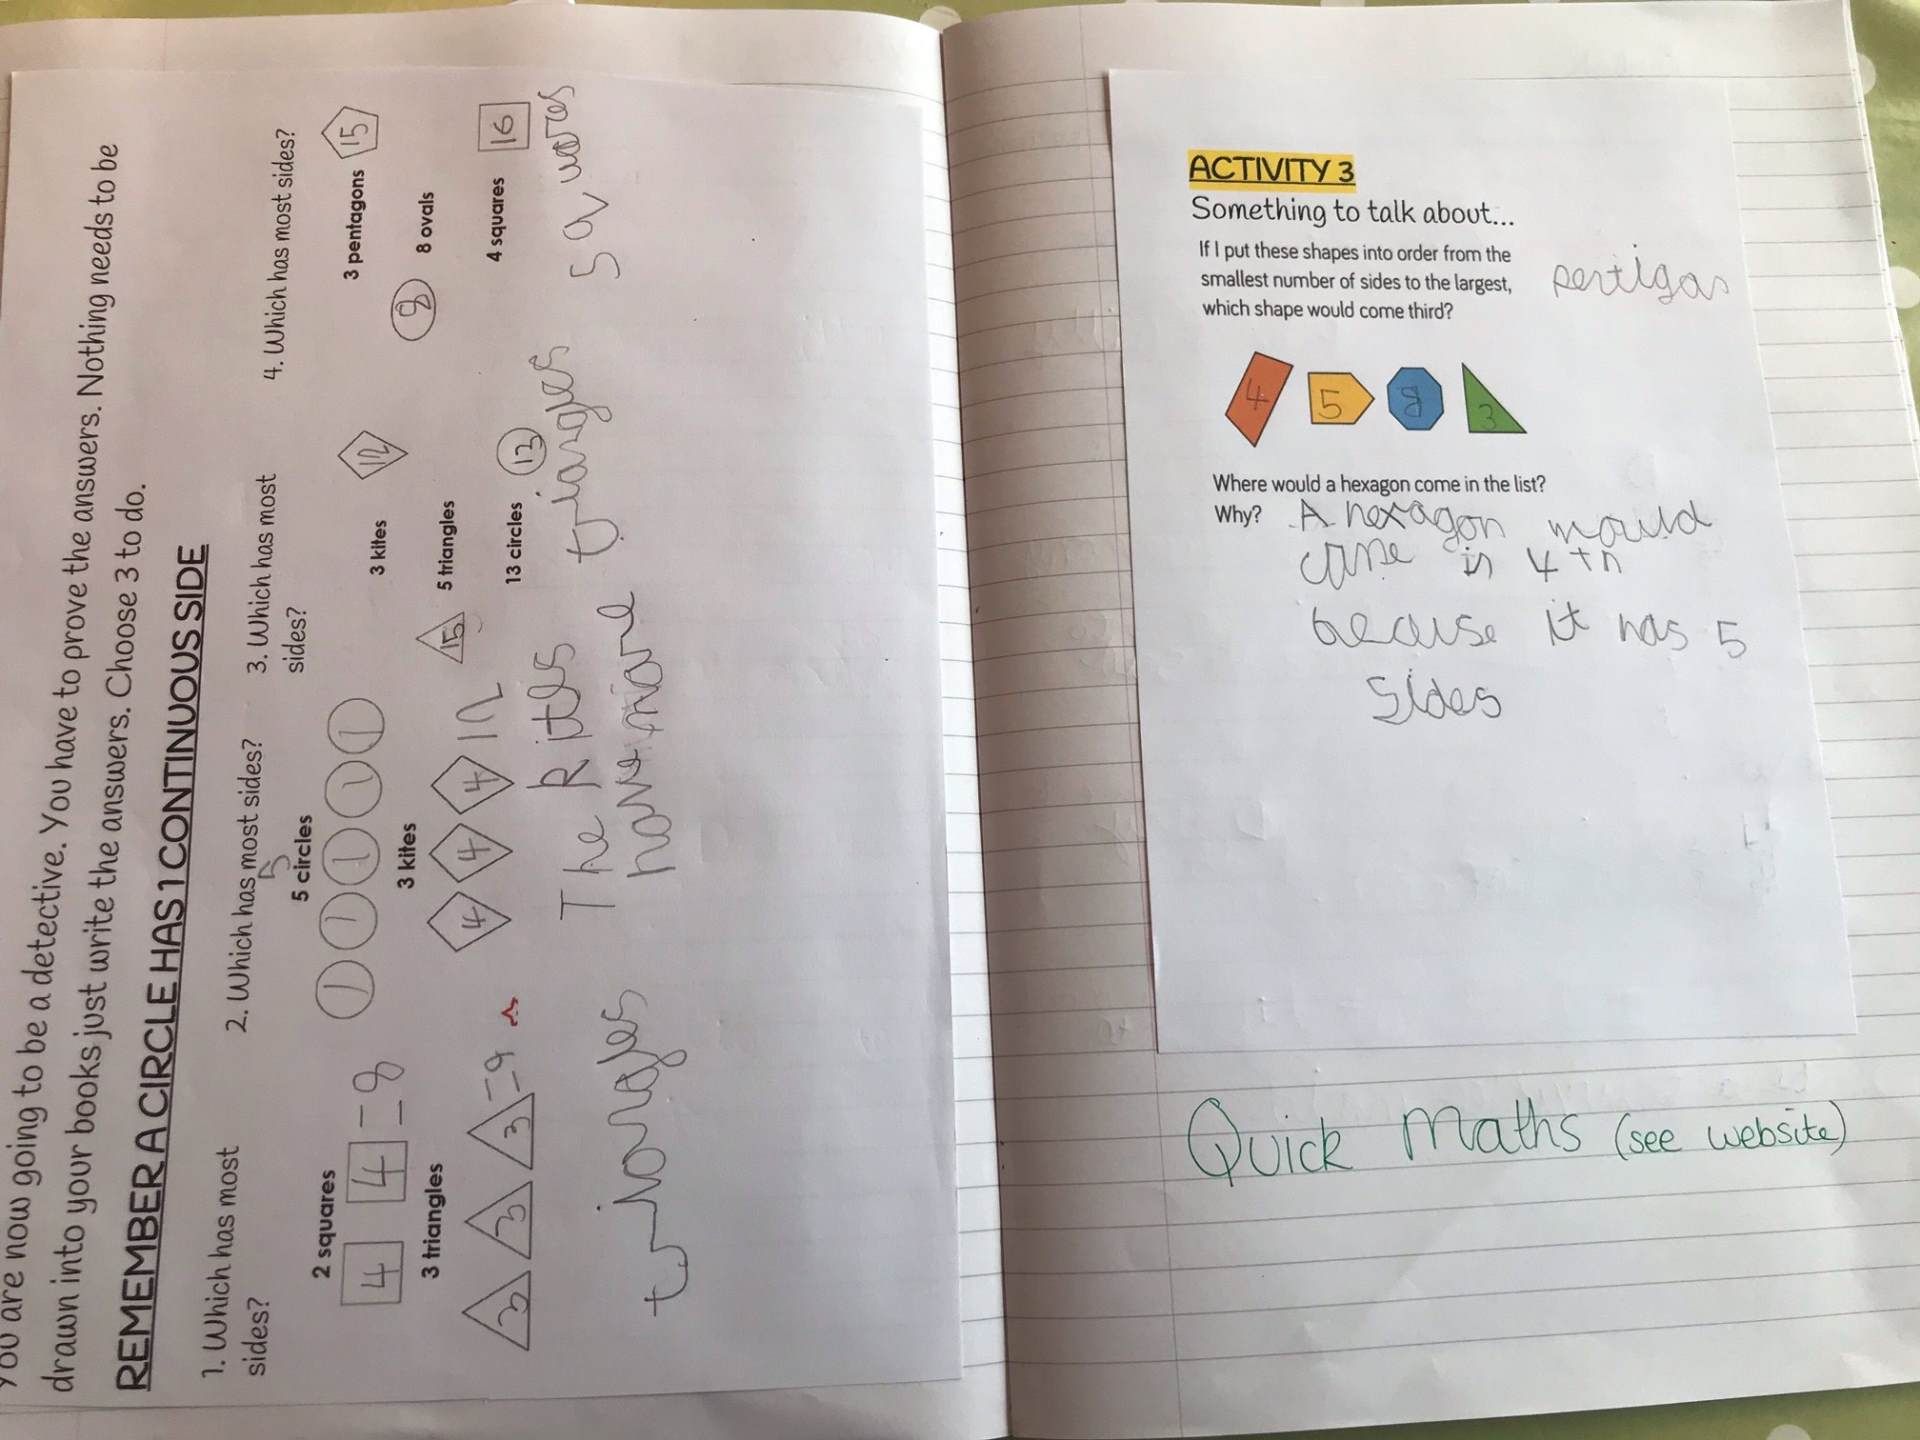 You are now going to be a detective. You have to prove the answers. Nothing needs to be
drawn into your books just write the answers. Choose 3 to do.
REMEMBER A CIRCLE HAS 1 CONTINUOUS SIDE
1. Which has most
sides?
2 squares
4 4 = 8
3 triangles
3 3 3 = 9
triangles
2. Which has most sides?
5
5 circles
1 1 1 1 1
3 kites
4 4 4 12
The Kites
have more
3. Which has most
sides?
3 kites
12
5 triangles
15
13 circles
13
triangles
4. Which has most sides?
3 pentagons
15
8 ovals
8
4 squares
16
squares
ACTIVITY 3
Something to talk about...
If I put these shapes into order from the
smallest number of sides to the largest,
which shape would come third?
pentigon
4 5 8 3
Where would a hexagon come in the list?
Why? A hexagon would
come in 4th
because it has 5
sides
Quick Maths (see website)